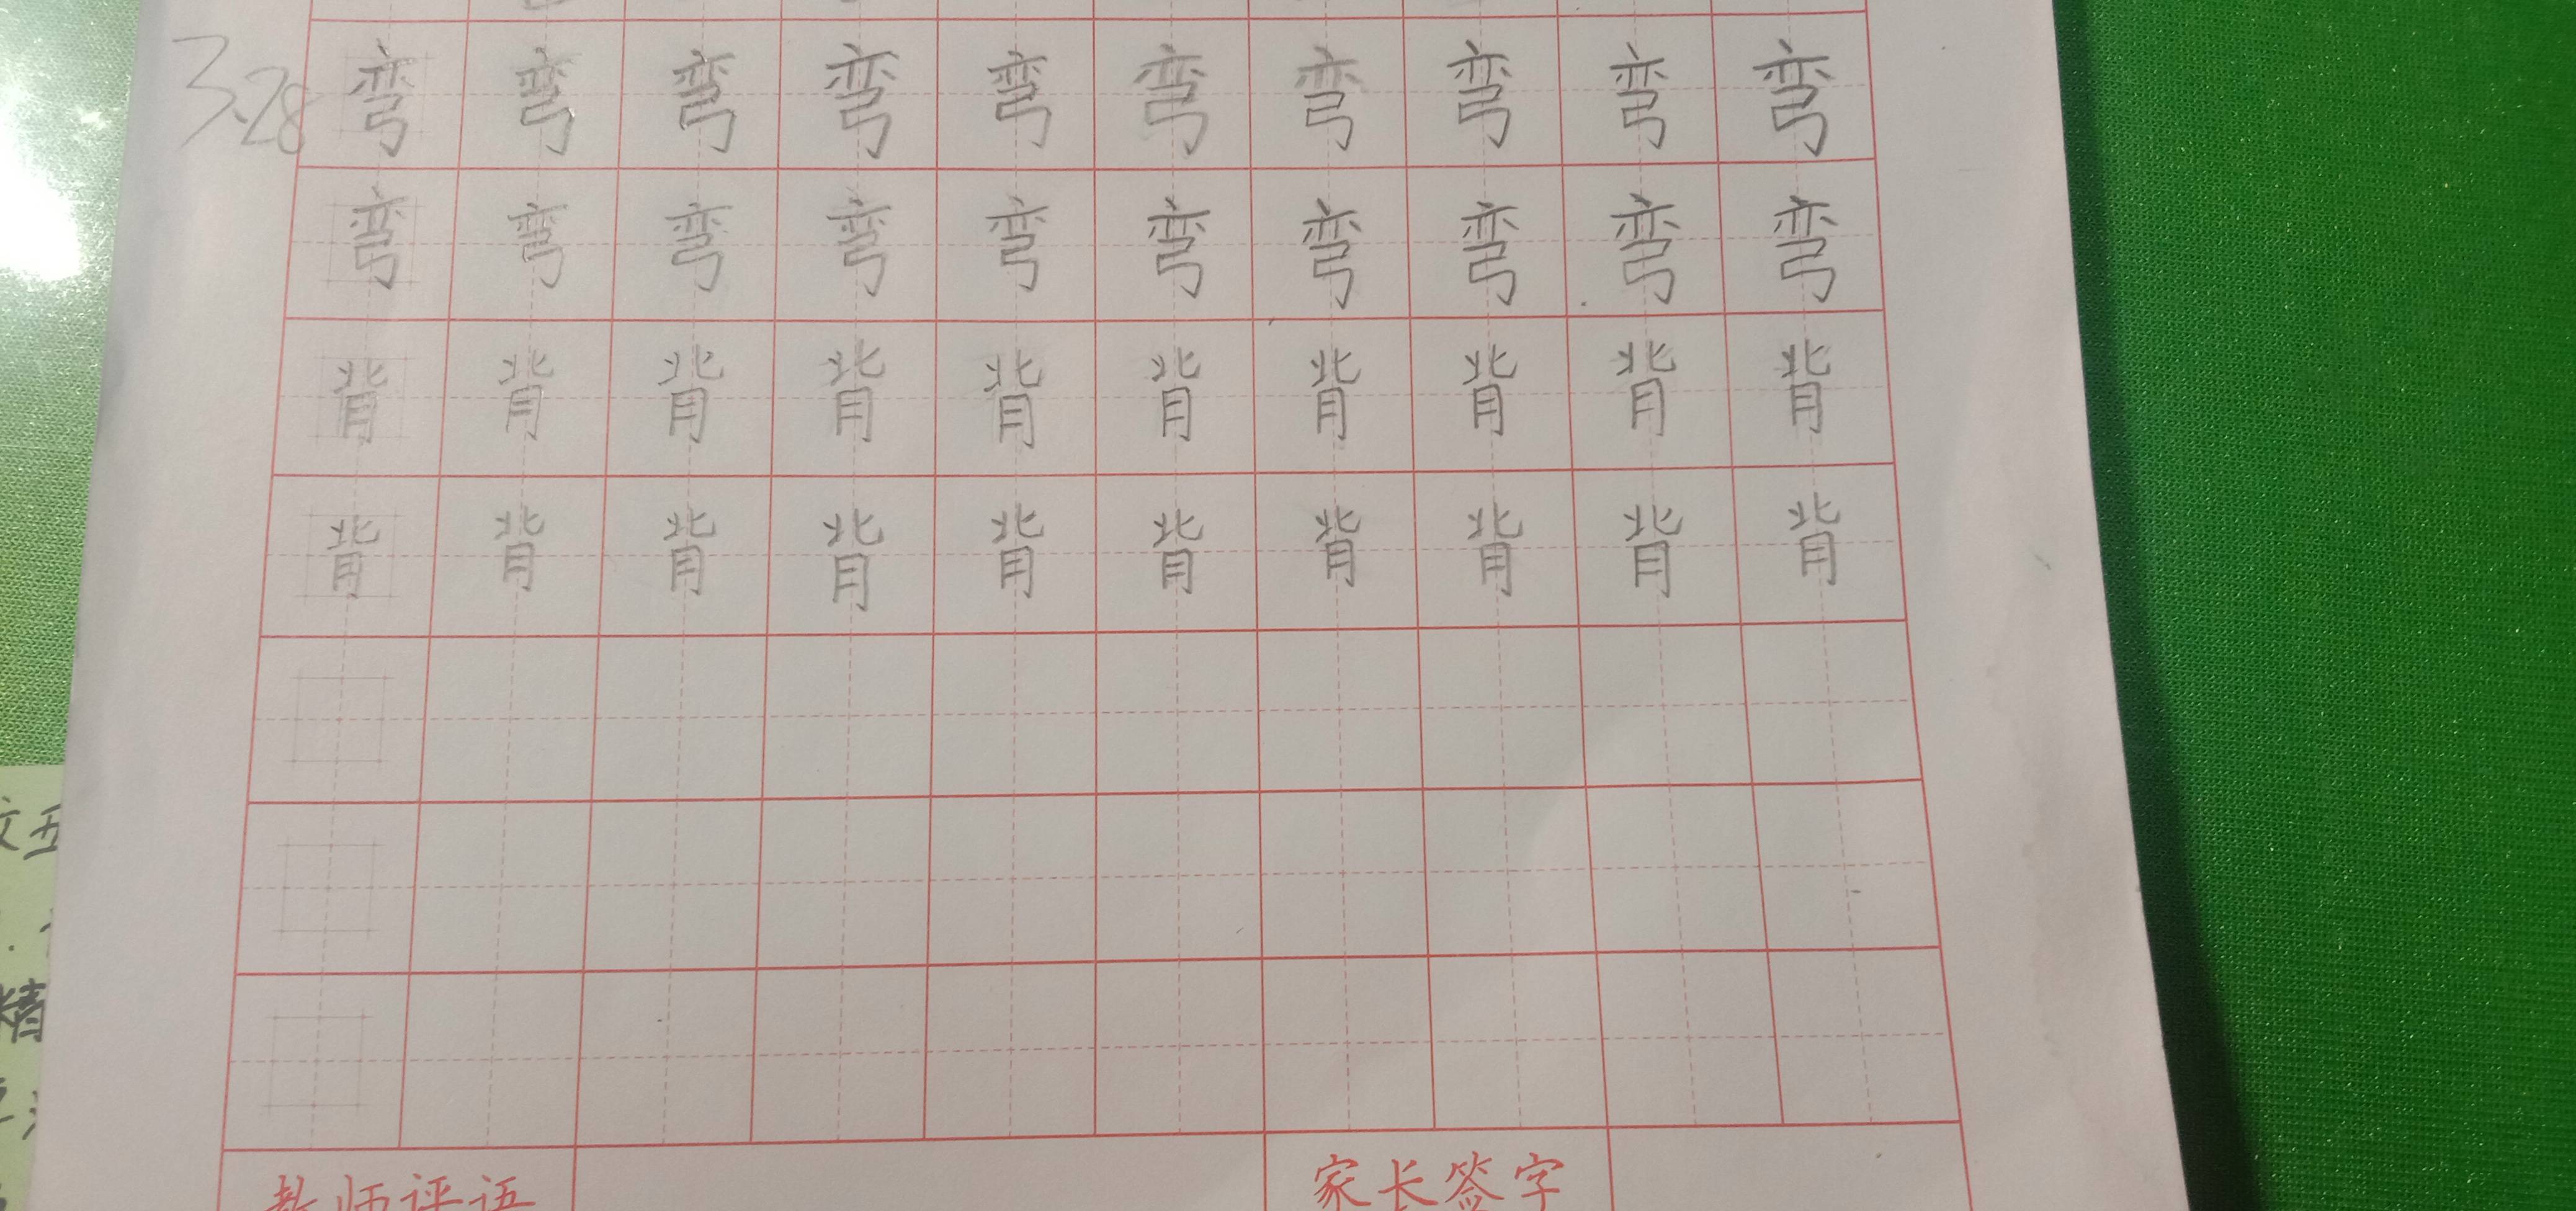 3.28
弯弯弯弯弯弯弯弯弯弯
弯弯弯弯弯弯弯弯弯弯
背背背背背背背背背背
背背背背背背背背背背
教师评语 家长签字